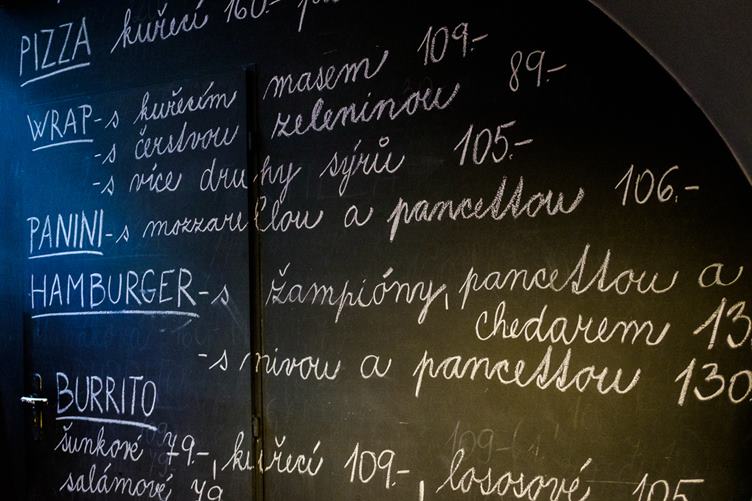 PIZZA kuřecí 160.-
WRAP - s kuřecím masem 109.-
- s čerstvou zeleninou 89.-
- s více druhy sýrů 105.-
PANINI - s mozzarellou a pancettou 106.-
HAMBURGER - s žampióny, pancettou a
chedarem 13
- s nivou a pancettou 130
BURRITO
šunkové 79.-, kuřecí 109.-, lososové
salámové 79 105